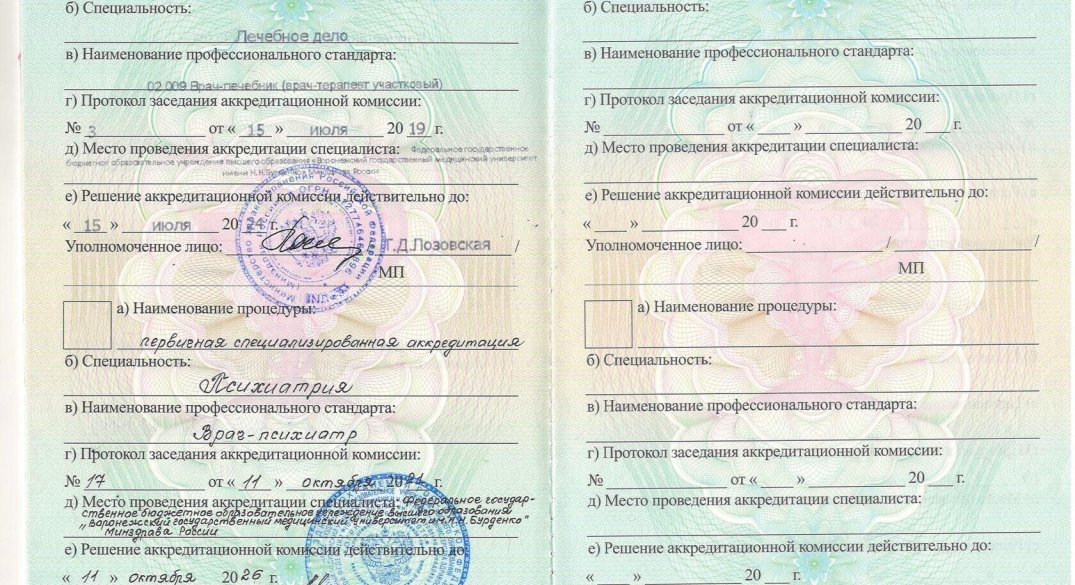 б) Специальность:
Лечебное дело
в) Наименование профессионального стандарта:
02.009 Врач-лечебник (врач-терапевт участковый)
г) Протокол заседания аккредитационной комиссии:
№ 3 от « 15 » июля 20 19 г.
д) Место проведения аккредитации специалиста: Федеральное государственное
бюджетное образовательное учреждение высшего образования «Воронежский государственный медицинский университет
имени Н.Н.Бурденко» Минздрава России
е) Решение аккредитационной комиссии действительно до:
« 15 » июля 20 24 г.
Уполномоченное лицо: Т.Д.Лозовская /
МП
а) Наименование процедуры:
первичная специализированная аккредитация
б) Специальность:
Психиатрия
в) Наименование профессионального стандарта:
Врач-психиатр
г) Протокол заседания аккредитационной комиссии:
№ 17 от « 11 » октября 2021 г.
д) Место проведения аккредитации специалиста: Федеральное государ-
ственное бюджетное образовательное учреждение высшего образования
„Воронежский государственный медицинский университет им. Н.Н. Бурденко"
Минздрава России
е) Решение аккредитационной комиссии действительно до:
« 11 » октября 2026 г.
б) Специальность:
в) Наименование профессионального стандарта:
г) Протокол заседания аккредитационной комиссии:
№ от « » 20 г.
д) Место проведения аккредитации специалиста:
е) Решение аккредитационной комиссии действительно до:
« » 20 г.
Уполномоченное лицо: / /
МП
а) Наименование процедуры:
б) Специальность:
в) Наименование профессионального стандарта:
г) Протокол заседания аккредитационной комиссии:
№ от « » 20 г.
д) Место проведения аккредитации специалиста:
е) Решение аккредитационной комиссии действительно до:
« » 20 г.